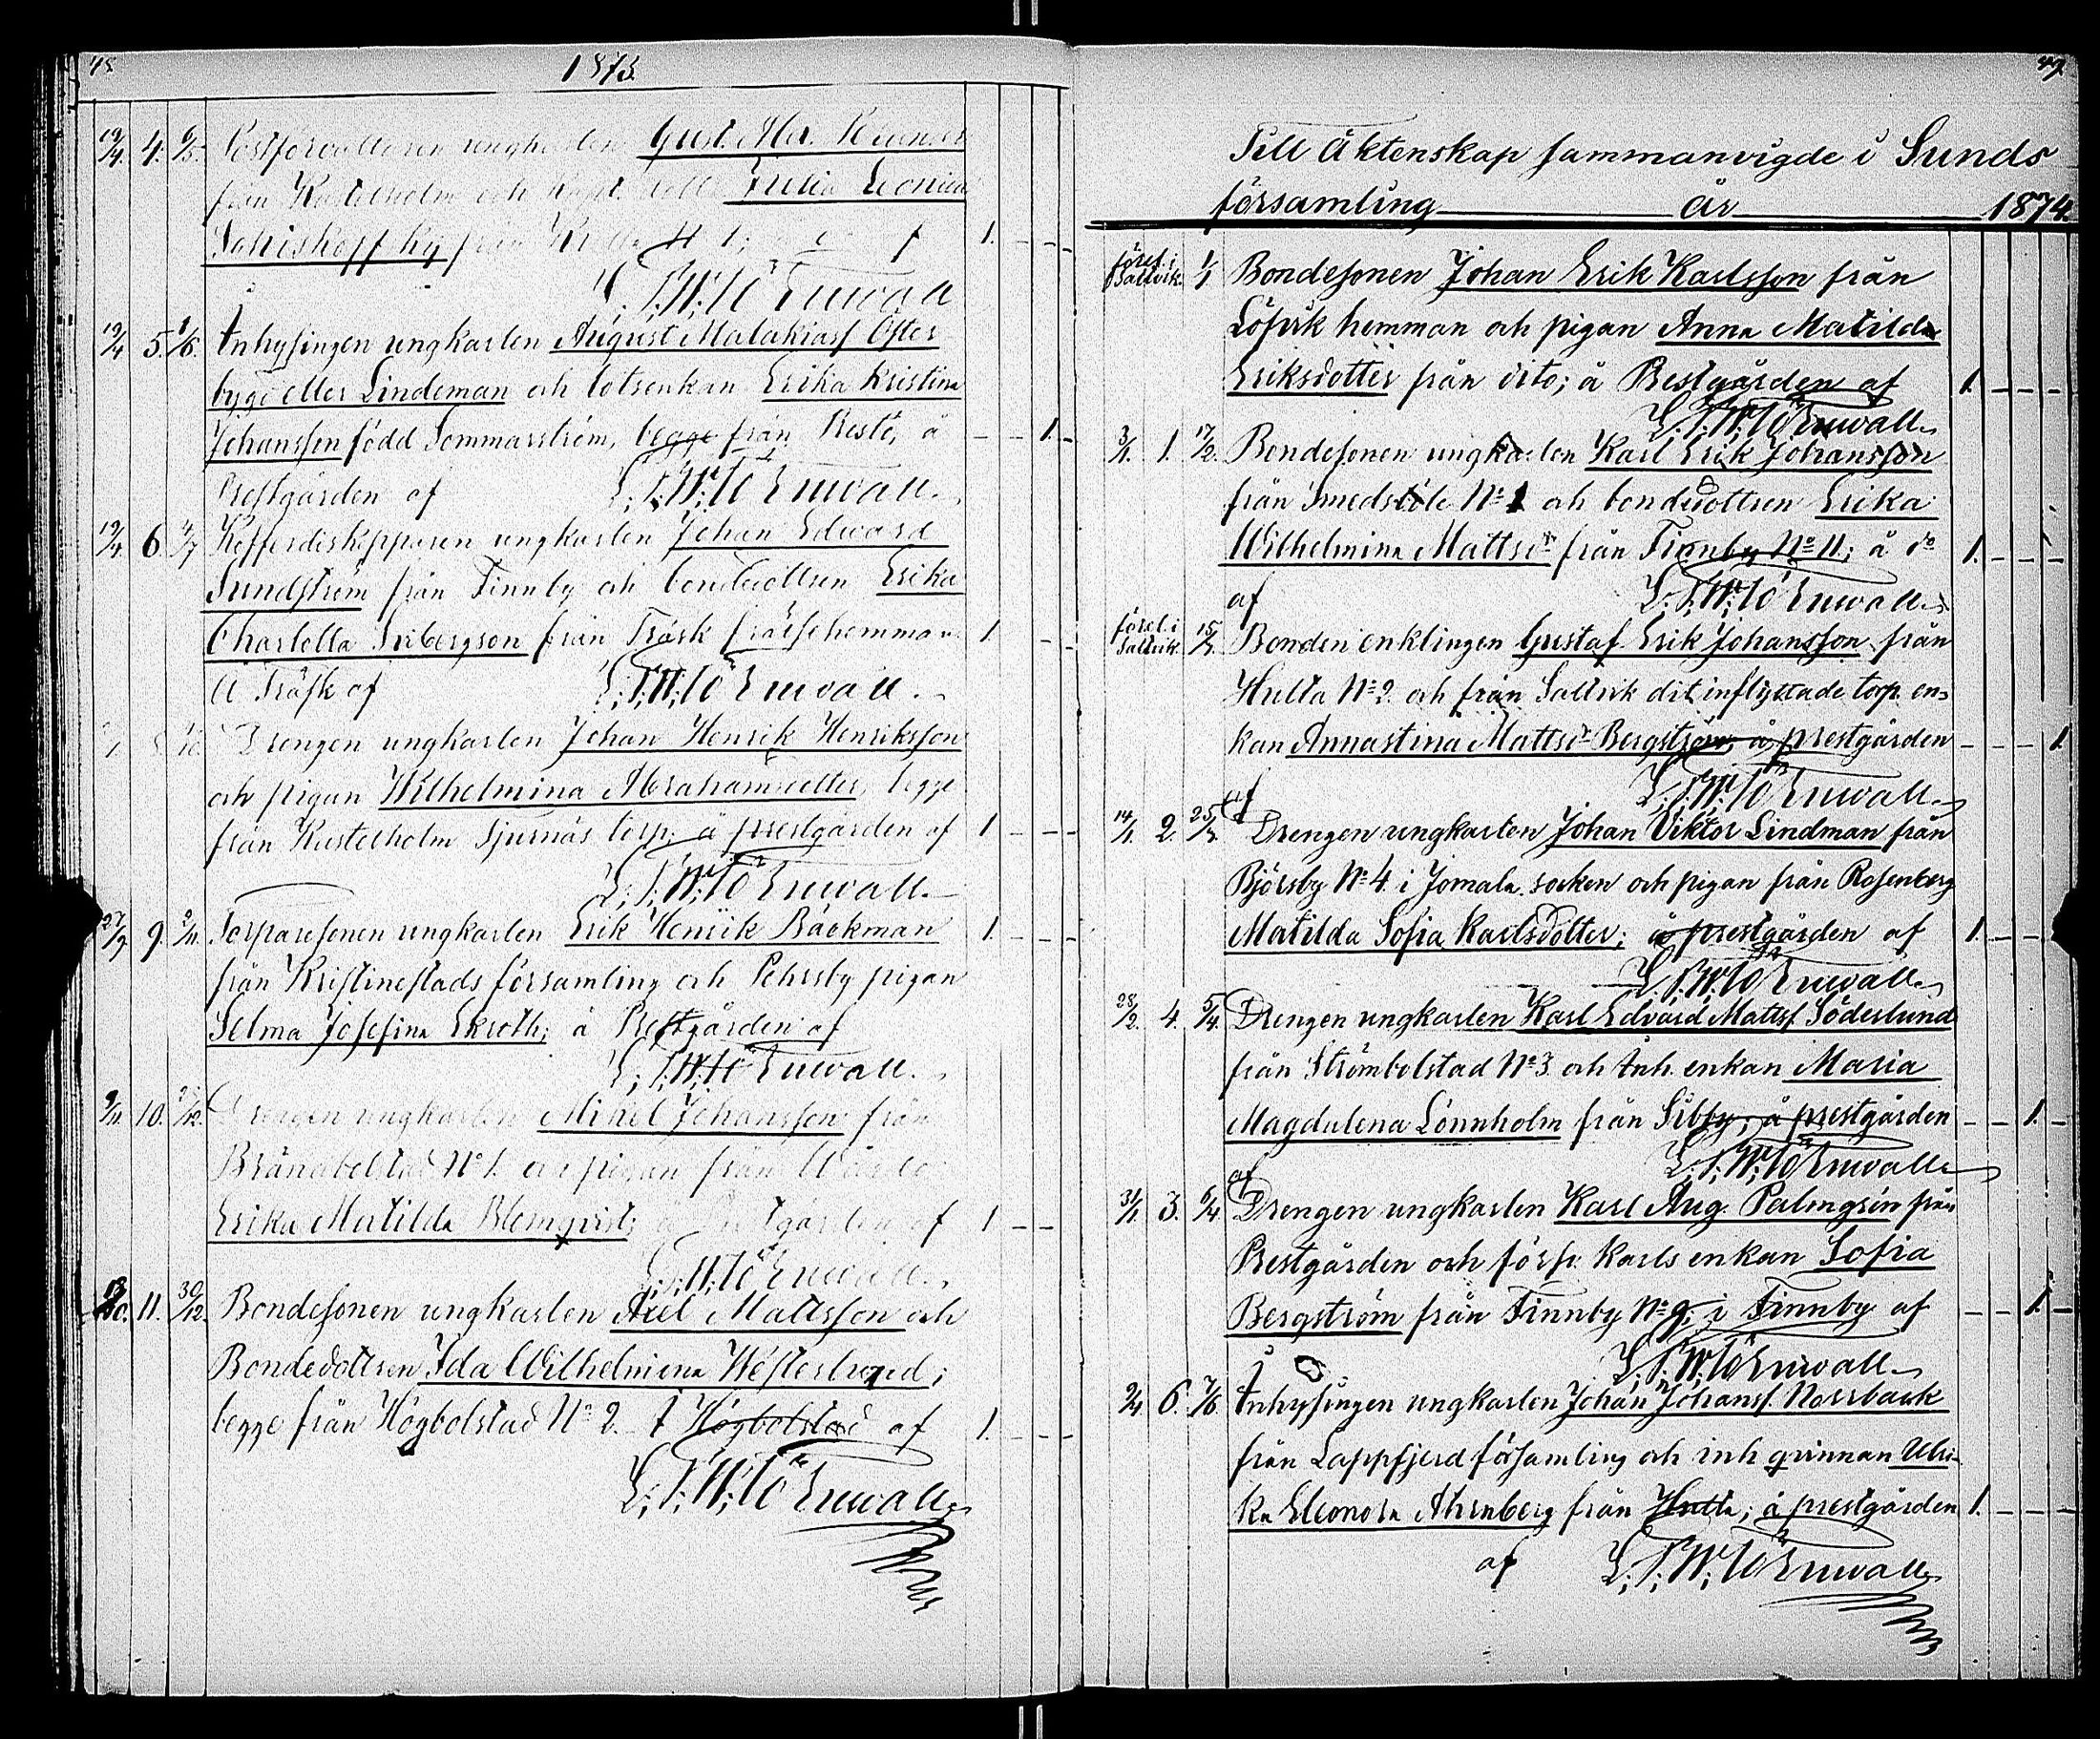 48
1873.
19/4. 4. 6/5. Postförvaltaren ungkarlen Gust. Alex.
från Kastelholm och Julia Leonida
från N 1. 1.
L. T. W. Tö Enwall
19/4 5. 1/6. Inhysingen ungkarlen August Malakiass Öster
bygd eller Lindeman och lotsenkan Erika Kristina
Johansson född Sommarström, begge från Prestö, å 1.
Prestgården af L. T. W. Tö Enwall.
19/4 6. Kofferdiskepparen ungkarlen Johan Edward
Sundström från Finnby och bondedottren Erika
Charlotta Sribergson från Träsk frälsehemman 1.
å Träsk af L. T. W. Tö Enwall.
Drengen ungkarlen Johan Henrik Henriksson
och pigan Wilhelmina Abrahamsdotter, begge
från Kastelholm Tjurnäs torp; å prestgården af 1
L. T. W. Tö Enwall.
27/9. 9. 2/11. Torparesonen ungkarlen Erik Henrik Backman 1.
från Kristinestads församling och Pehrsby pigan
Selma Josefina Ekroth; å Prestgården af
L. T. W. Tö Enwall.
9/11. 10. 27/12. Drengen ungkarlen Mikel Johansson från
Brändbolstad No 1. och pigan från
Erika Matilda Blomqvist; å Prestgården af 1
L. T. W. Tö Enwall.
11. 30/12. Bondesonen ungkarlen Axel Mattsson och
Bondedottren Ida Wilhelmina Westerlund;
begge från Högbolstad No 2. I Högbolstad af 1.
L. T. W. Tö Enwall.
49.
Till Äktenskap sammanvigde i Sunds
församling år 1874.
förel. i Saltvik. 1/1 Bondesonen Johan Erik Karlsson från
Löfvik hemman och pigan Anna Matilda
Eriksdotter från dito; å Prestgården af 1.
L. T. W. Tö Enwall.
3/1. 1. 17/2. Bondesonen ungkarlen Karl Erik Johansson
från Smedsböle No 1 och bondedottren Erika
Wilhelmina Mattsdr från Finnby No 11; å do 1.
af L. T. W. Tö Enwall.
förel. i Saltvik. 15/ Bonden enklingen Gustaf Erik Johansson från
Hulta No 2. och från Saltvik dit inflyttade torp. en-
kan Annastina Mattsdr Bergström, å prestgården 1.
af L. T. W. Tö Enwall.
14/1. 2. 25/ Drengen ungkarlen Johan Viktor Lindman från
Björsby No 4. i Jomala socken och pigan från Rosenberg
Matilda Sofia Karlsdotter; å prestgården af 1.
L. T. W. Tö Enwall.
28/2. 4. 5/4. Drengen ungkarlen Karl Edvard Mattss. Söderlund
från Strömbolstad No 3 och Inh. enkan Maria
Magdalena Lönnholm från Sibby; å prestgården 1.
af L. T. W. Tö Enwall.
31/1. 3. 6/4. Drengen ungkarlen Karl Aug. Palmgrén från
Prestgården och förp. karls enkan Sofia
Bergström från Finnby No 9; i Finnby af 1.
L. T. W. Tö Enwall.
6. 7/6 Inhysingen ungkarlen Johan Johanss. Norrback
från Lappfjerd församling och inh qvinnan Ulri-
ka Eleonora Ahrnberg från Hulta; å prestgården 1.
af L. T. W. Tö Enwall.